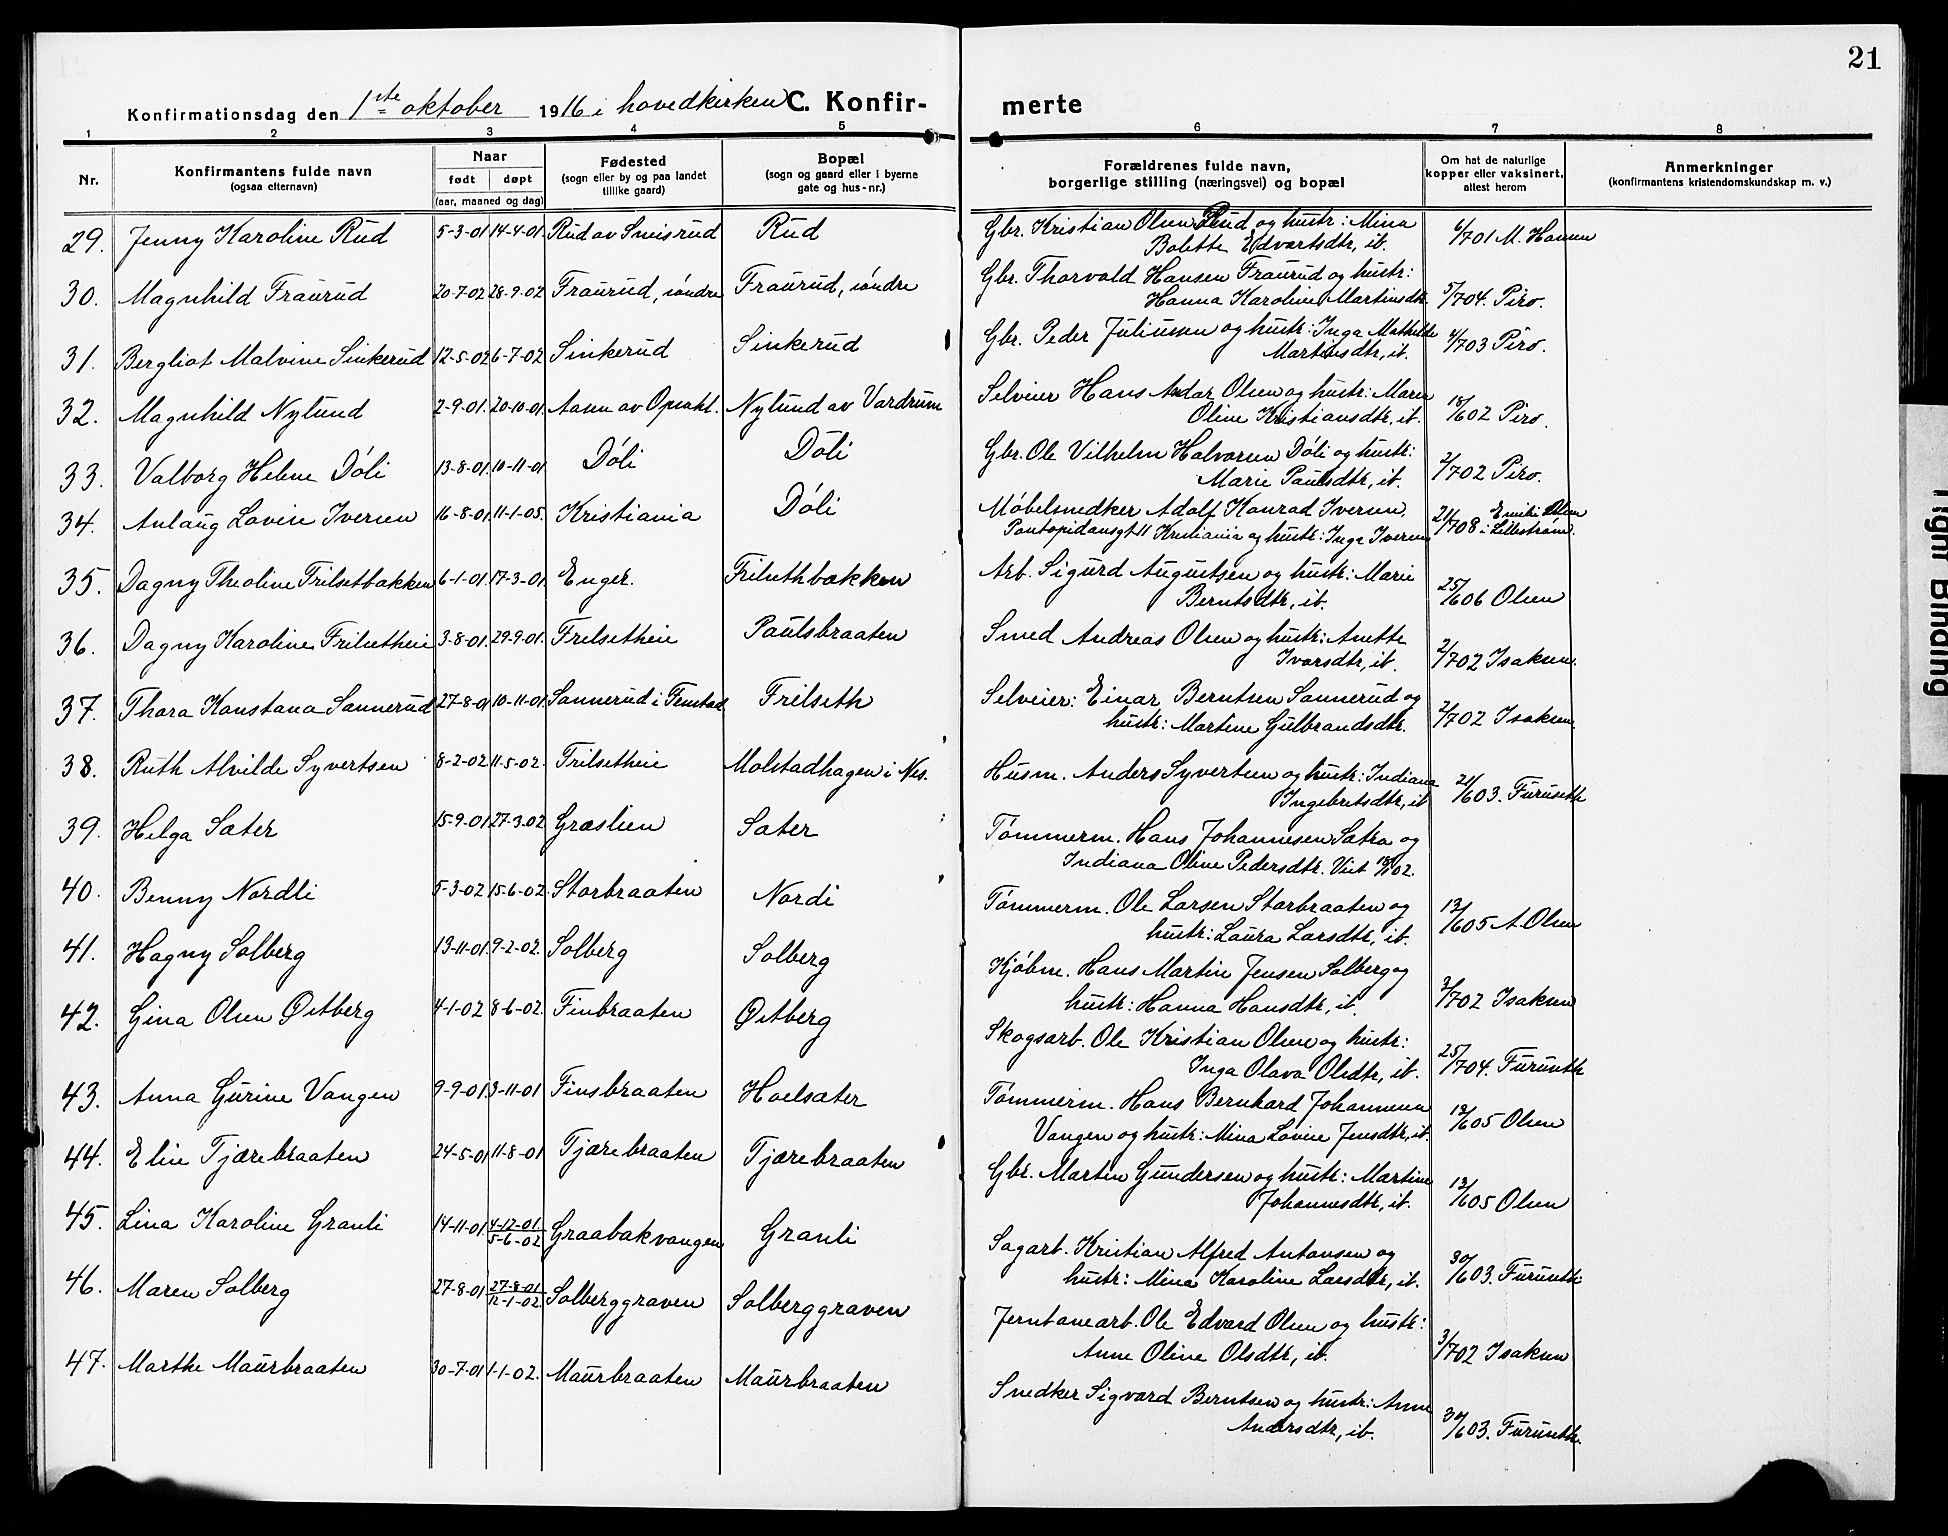 21
Konfirmationsdag den 1ste oktober 1916 i hovedkirken C. Konfir- merte
1 2 3 4 5 6 7 8
Nr. Konfirmantens fulde navn (ogsaa efternavn) Naar født døpt (aar, maaned og dag) Fødested (sogn eller by og paa landet tillike gaard) Bopæl (sogn og gaard eller i byerne gate og hus-nr.) Forældrenes fulde navn, borgerlige stilling (næringsvei) og bopæl Om hat de naturlige kopper eller vaksinert, attest herom Anmerkninger (konfirmantens kristendomskundskap m. v.)
29. Jenny Karoline Rud 5-3-01 14-4-01. Rud av Sneisrud Rud Gbr. Kristian Olsen Rud og hustr: Mina
Bolette Edvartsdtr, ib. 6/7 01 M. Hansen
30. Magnhild Fraurud 20-7-02 28-9-02 Fraurud, søndre Fraurud, søndre Gbr. Thorvald Hansen Fraurud og hustr:
Hanna Karoline Martinsdtr 5/7 04. Piro.
31. Bergliot Malvine Sinkerud 12-5-02 6-7-02 Sinkerud Sinkerud Gbr. Peder Juliussen og hustr: Inga Mathilde
Martinsdtr, ib. 4/7 03 Piro.
32. Magnhild Nylund 2-9-01. 20-10-01. Aasen av Opsahl. Nylund av Vardrum Selveier Hans Andor Olsen og hustr: Maren
Oline Kristiansdtr, ib. 18/6 02 Piro.
33. Valborg Helene Döli 13-8-01. 10-11-01 Döli Döli Gbr. Ole Vilhelm Halvorsen Döli og hustr:
Marie Paulsdtr, ib. 2/7 02 Piro
34. Anlaug Lovise Iversen 16-8-01 11-1-05. Kristiania Döli Möbelsnedker Adolf Konrad Iversen,
Pontopidansgt 11 Kristiania og hustr: Inga Iversen 21/7 08 Emilie Olsen i Lillestrøm.
35. Dagny Theoline Frilsetbakken 6-1-01. 17-3-01. Enger. Frilsethbakken Arb. Sigurd Augustsen og hustr: Marie
Berntsdtr, ib. 25/6 06 Olsen
36. Dagny Karoline Frilsetheie 3-8-01. 29-9-01. Frelsetheie Paulsbraaten Smed Andreas Olsen og hustr: Anette
Ivarsdtr, ib. 2/7 02 Isaksen.
37. Thora Konstana Sannerud 27-8-01 10-11-01. Sannerud i Fenstad Frilseth Selveier: Einar Berntsen Sannerud og
hustr: Martine Gulbrandsdtr. 2/7 02 Isaksen.
38. Ruth Alvilde Syvertsen 8-2-02 11-5-02. Frilsetheie Molstadhagen i Nes. Husm. Anders Syvertsen og hustr: Indiana
Ingebretsdtr, ib 21/6 03. Furuseth
39. Helga Sæter 15-9-01 27-3-02 Græslien Sæter Tömmerm. Hans Johannesen Sætra og
Indiana Oline Pedersdtr. Viet 02.
40. Benny Nordli 5-3-02 15-6-02. Storbraaten Nordi Tömmerm. Ole Larsen Storbraaten og
hustr: Laura Larsdtr, ib. 13/6 05 A. Olsen
41. Hagny Solberg 13-11-01. 9-2-02. Solberg Solberg Kjöbm. Hans Martin Jensen Solberg og
hustr: Hanna Hansdtr, ib. 3/7 02 Isaksen
42. Gina Olsen Østberg 4-1-02 8-6-02. Finbraaten Østberg Skogsarb. Ole Kristian Olsen og hustr:
Inga Olava Olsdtr, ib. 25/7 04. Furuseth
43. Anna Gurine Vangen 9-9-01. 3-11-01 Finsbraaten Hoelsæter Tömmerm. Hans Bernhard Johannesen
Vangen og hustr: Mina Lovise Jensdtr, ib. 13/6 05 Olsen
44. Eline Tjærebraaten 24-5-01 11-8-01 Tjærebraaten Tjærebraaten Gbr. Martin Gundersen og hustr: Martine
Johannesdtr, ib. 13/6 05 Olsen
45. Lina Karoline Granli 14-11-01. 4-12-01 5-6-02 Graabakvangen Granli Sagarb. Kristian Alfred Antonsen og
hustr: Mina Karoline Larsdtr, ib. 30/6 03. Furuseth
46. Maren Solberg 27-8-01 27-8-01 12-1-02. Solberggraven Solberggraven Jernbanearb. Ole Edvard Olsen og hustr:
Anne Oline Olsdtr, ib. 3/7 02 Isaksen
47. Marthe Maurbraaten 30-7-01 1-1-02. Maurbraaten Maurbraaten Snedker Sigvard Berntsen og hustr: Anne
Andersdtr, ib. 30/6 03. Furuseth.
Tight Binding